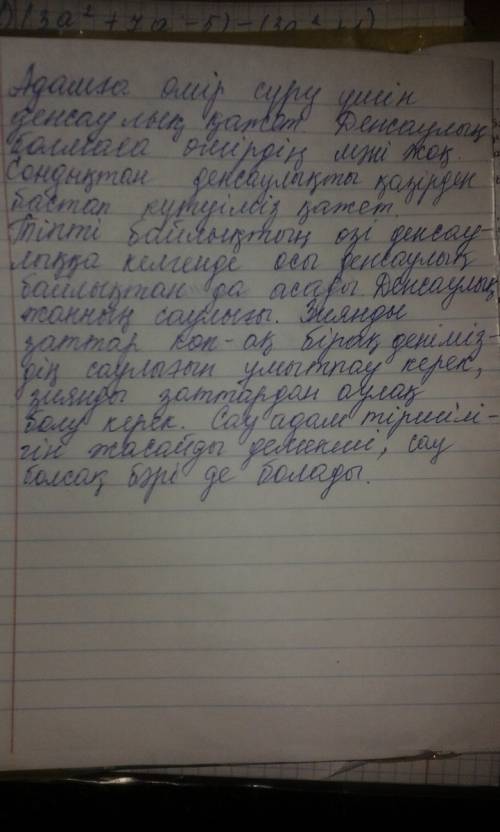 (3a² + 7a - 5) - (3a² + 
Адамға өмір сүру үшін
денсаулық қажет Денсаулық
болмаса өмірдің мәні жоқ.
Сондықтан денсаулықты қазірден
бастап күтуіміз қажет.
Тіпті байлықтың өзі денсау-
лыққа келгенде осы денсаулық
байлықтан да асады Денсаулық
жанның саулығы. Зиянды
заттар көп-ақ бірақ деніміз-
дің саулығын ұмытпау керек,
зиянды заттардан аулақ
болу керек. Сау адам тіршілі-
гін жасайды демекші, сау
болсақ бәрі де болады.